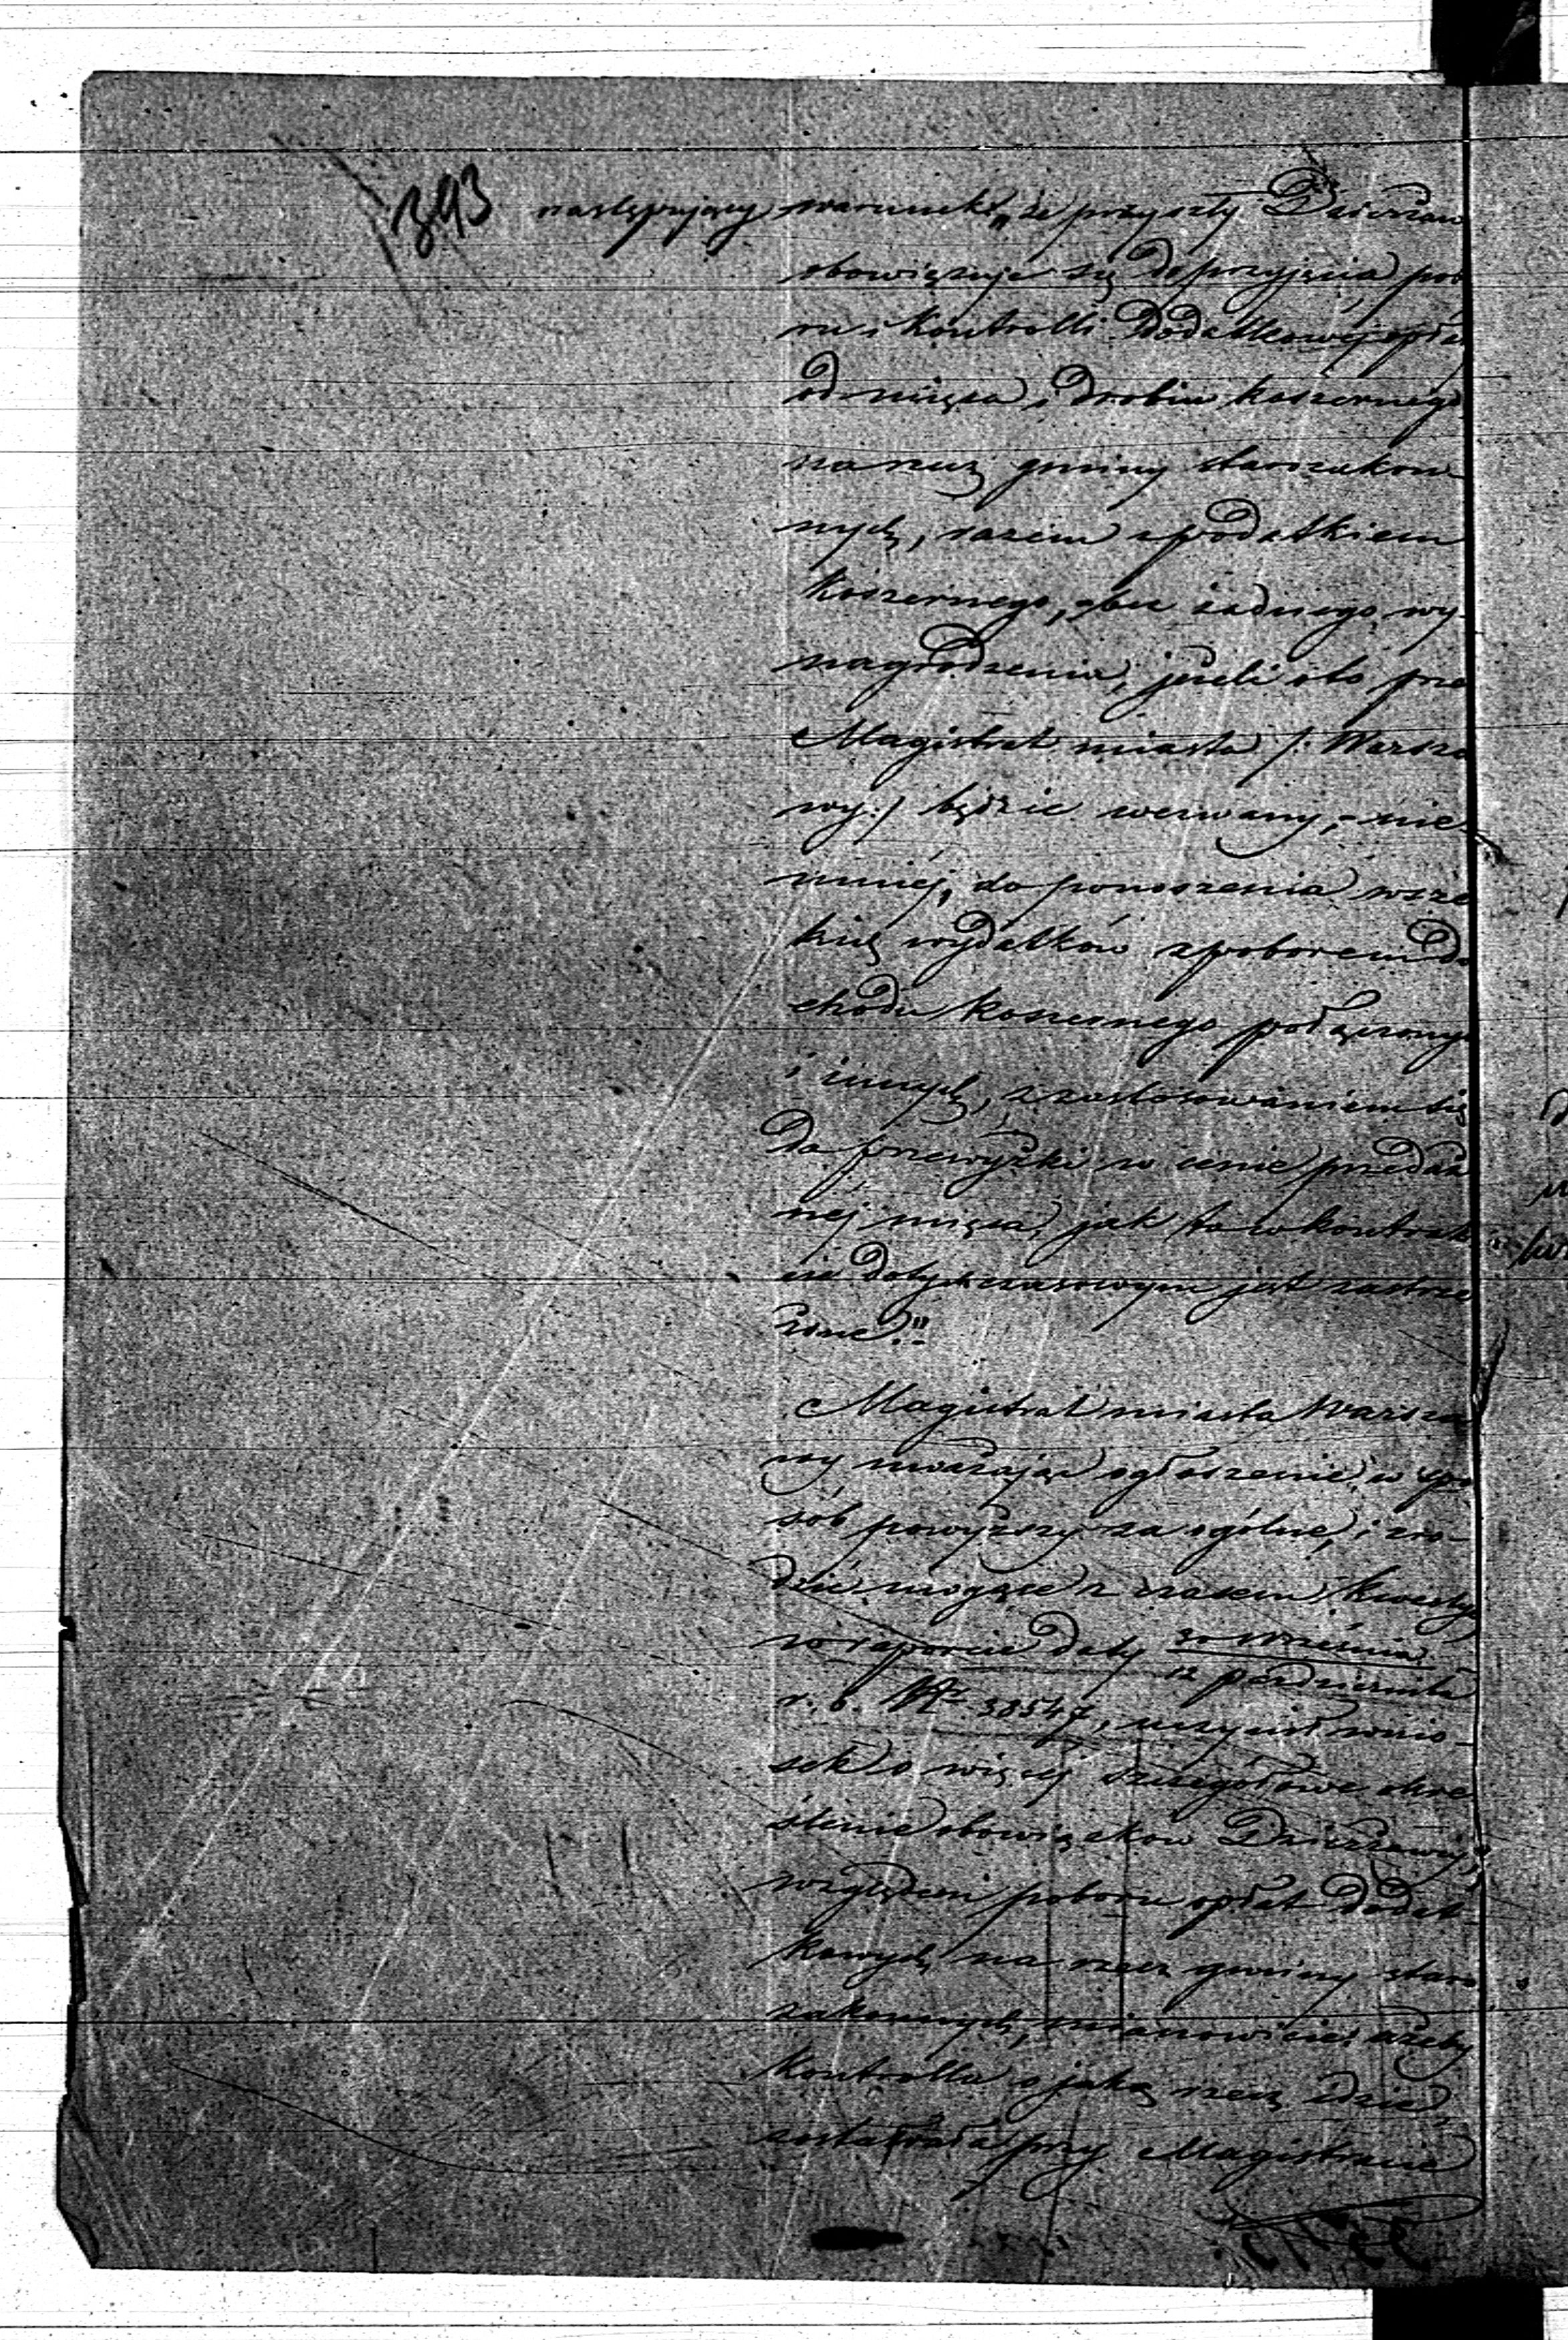 393 następujący warunek „że przyszły Dzierżaw
obowięzuje się do przyjęcia pobo
ru i kontrolli dodatkowej opła
od mięsa i drobiu koszernego
na rzecz gminy starozakon
nych, razem z podatkiem
koszernego, bez żadnego wy-
nagrodzenia, jeżeli o to prze
Magistrat miasta /: Warsza
wy :/ będzie wezwany, – nie-
mniej, do ponoszenia wsze
kich wydatków z poborem do
chodu koszernego połączonych
i innych, z zastosowaniem się
do przewyżki w cenie przedaż
nej mięsa, jak to w kontrak
cie dotychczasowym jest zastrze
żone."
Magistrat miasta Warsza
wy uważając ogłoszenie w spo
sób powyższy za ogólne, i zro-
dzić mogące z czasem kwestye,
w raporcie daty 30 Września
12 Października
r. b. Nr 38547, uczynił wnio-
sek o więcej szczegółowe okre
ślenie obowiązków Dzierżawcy,
względem poboru opłat dodat-
kowych na rzecz gminy staro
zakonnych, mianowicie: ażeby
kontrolla o jaką rzecz idzie,
zostawała przy Magistracie